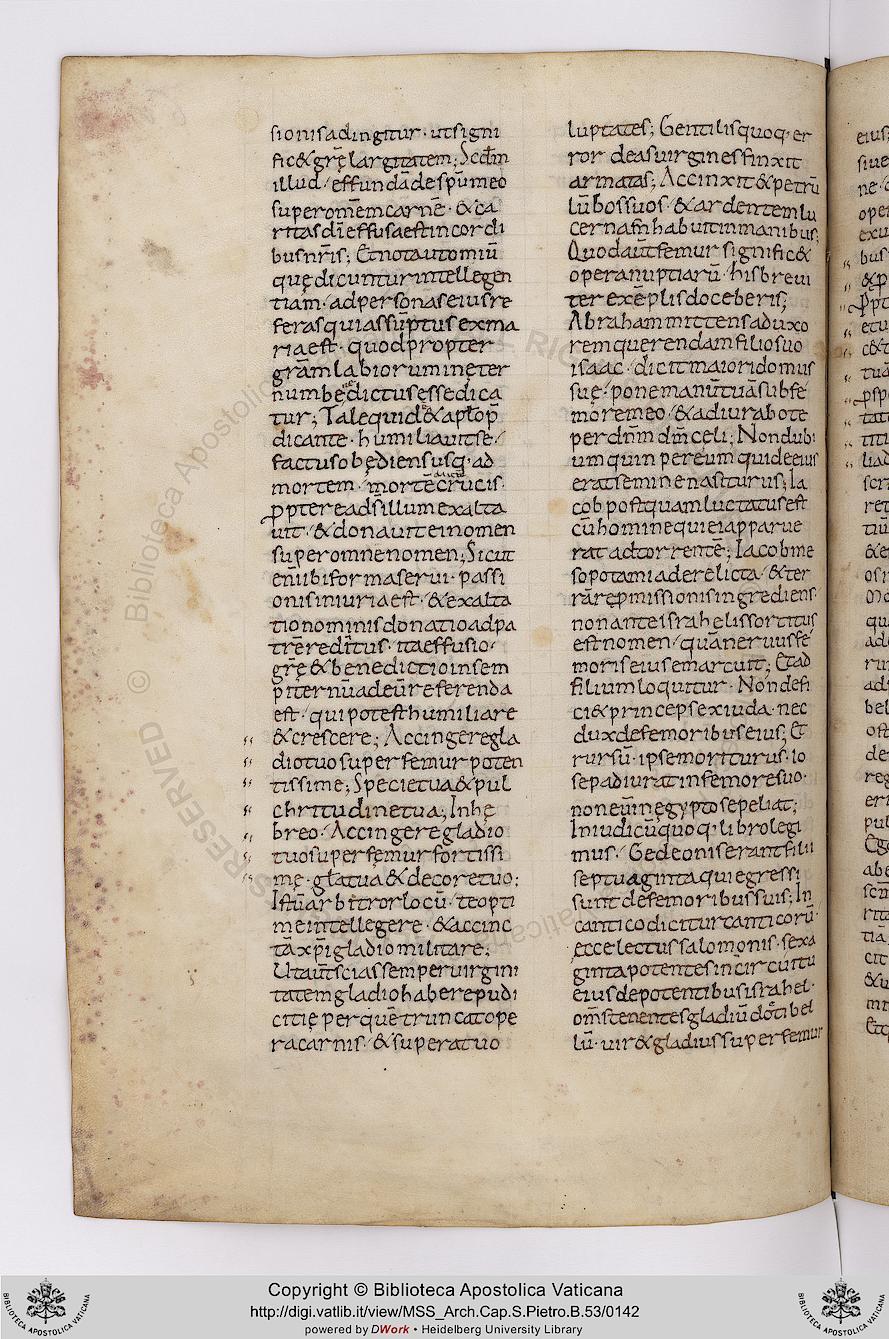 sionis adingitur · ut signi
fic& gr̄ę largitatem; Scdm̄
illud · effundā de spū meo
super om̄em carnē · & ca
ritas dī effusa est in cordi
bus nr̄is; Et nota ut omiū
quę dicuntur intellegen
tiam · ad personas eius re
feras qui assūptus ex ma
ria est · quod propter
grām labiorum in ęter
num bedictus esse dica
tur; Tale quid & aptos p̄
dicante · humiliavit se ·
factus obędiens usq· ad
mortem · mortē crucis ·
ppter ea ds illum exalta
uit · & donauit ei nomen
super omne nomen; Sicut
eni ibi forma serui · passi
onis iniuria est · & exalta
tio nominis donatio ad pa
trē reditus · ita effusio ·
grę & benedictio in sem
piternū ad eū referenda
est · qui potest humiliare
& crescere; Accingere gla
dio tuo super femur poten
tissime; Specie tua & pul
chritudine tua; In hę
breo · Accingere gladio
tuo super fęmur fortissi
me · gl̄a tua & decore tuo;
Istū arbitror locū · te opti
me intellegere · & accinc
tā xp̄i gladio militare;
Ut aut̄ scias semper uirgini
tatem gladio habere pudi
citię per quē truncat ope
ra carnis · & superat uo
luptates; Gentilis quoq· er
ror deas uirgines finxit
armatas; Accinxit & petrū
lūbos suos · & ardentem lu
cernam̄ habuit in manibus;
Quod aut̄ femur signific&
opera nuptiarū · his breui
ter exēplis doceberis;
Abraham mittens ad uxo
rem querendam filio suo
isaac · dicit maiori domus
suę · pone manū tuā sub fę
more meo · & adiurabo te
per dnm̄ dm̄ celi; Non dubi
um quin per eum qui de eius
erat semine nasciturus; Ia
cob postquam luctatus est
cū homine qui ei apparue
rat ad torrentē; Iacob me
sopotamia derelicta · & ter
rā rep̄missionis ingrediens
non ante israhelis sortitus
est nomen · quā neruus fe
moris eius emarcuit; Et ad
filium loquitur · Non defi
ci& princeps ex iuda · nec
dux de femoribus eius; Et
rursū · ipse moriturus · io
sep adiurat in femore suo ·
non eum in ęgypto sepeliat;
In iudicū quoq· libro legi
mus · Gedeonis erant filii
septuaginta qui egressi
sunt de femoribus suis; In
cantico dicitur canticorū ·
ecce lectus salomonis · sexa
ginta potentes in circuitu
eius de potentibus israhel ·
om̄s tenentes gladiū docti bel
lū · uir & gladius super femur
Copyright © Biblioteca Apostolica Vaticana
http://digi.vatlib.it/view/MSS_Arch.Cap.S.Pietro.B.53/0142
powered by DWork • Heidelberg University Library